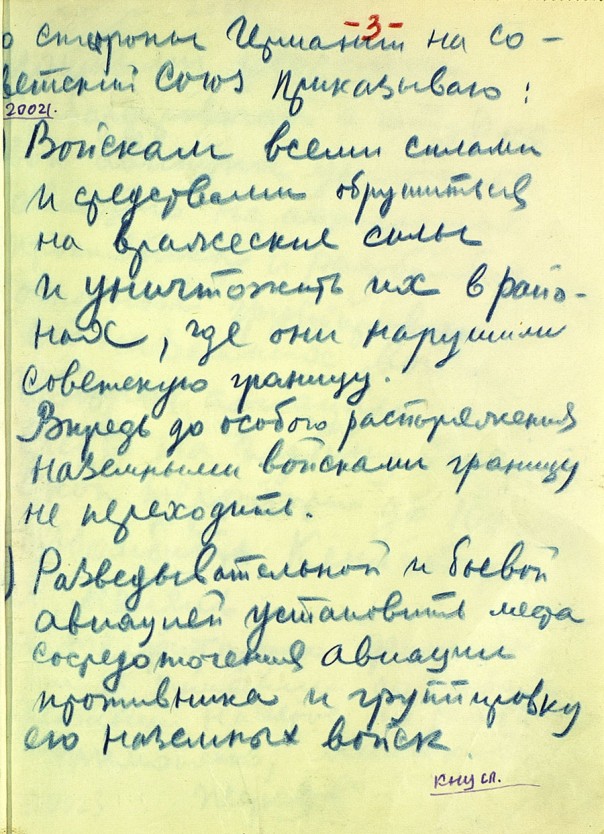 -3-
о стороны Германии на Со-
ветский Союз Приказываю:
2002г.
) Войскам всеми силами
и средствами обрушиться
на вражеские силы
и уничтожить их в райо-
нах, где они нарушили
советскую границу.
Впредь до особого распоряжения
наземными войсками границу
не переходить.
) Разведывательной и боевой
авиацией установить места
сосредоточения авиации
противника и группировку
его наземных войск